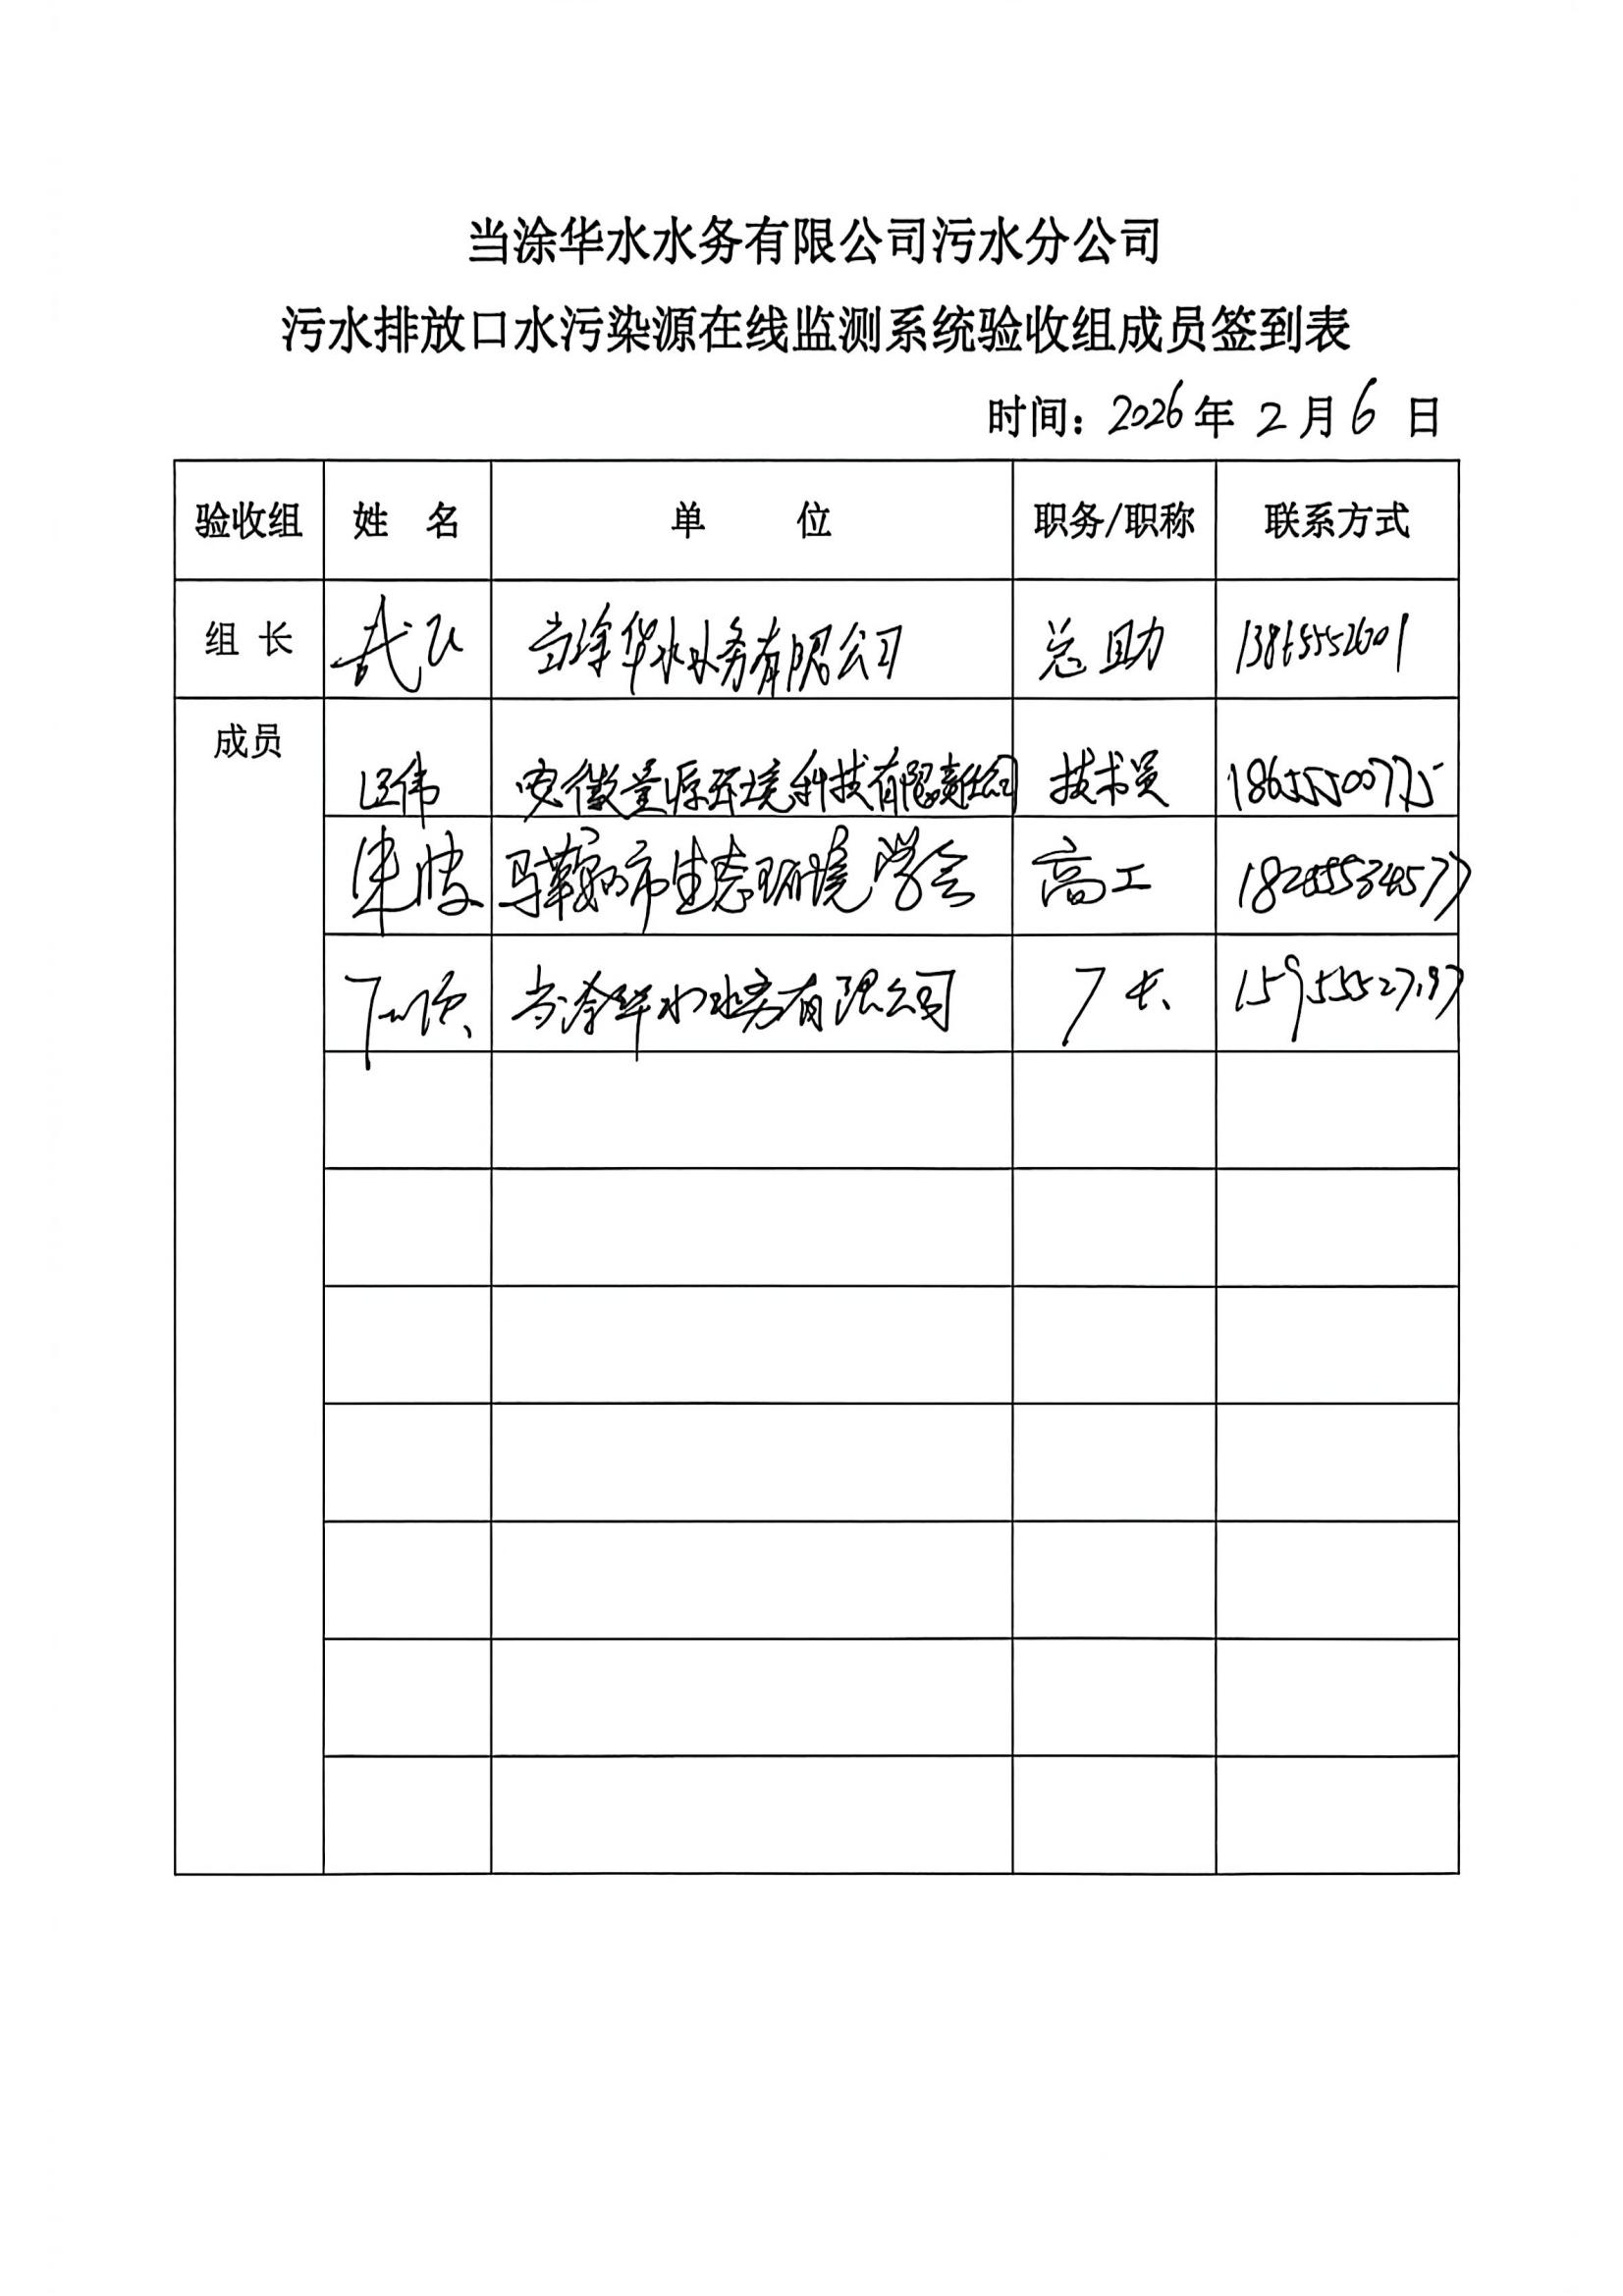 当涂华水水务有限公司污水分公司
污水排放口水污染源在线监测系统验收组成员签到表
时间：2026年 2 月 6 日
验收组 姓 名 单 位 职务/职称 联系方式
组 长 武 当涂华水水务有限公司 总助
成员
伟 安徽量源环境科技有限责任公司 技术员 18655500775
朱波 马鞍山市生态环境学会 高工
当涂华水水务有限公司 厂长